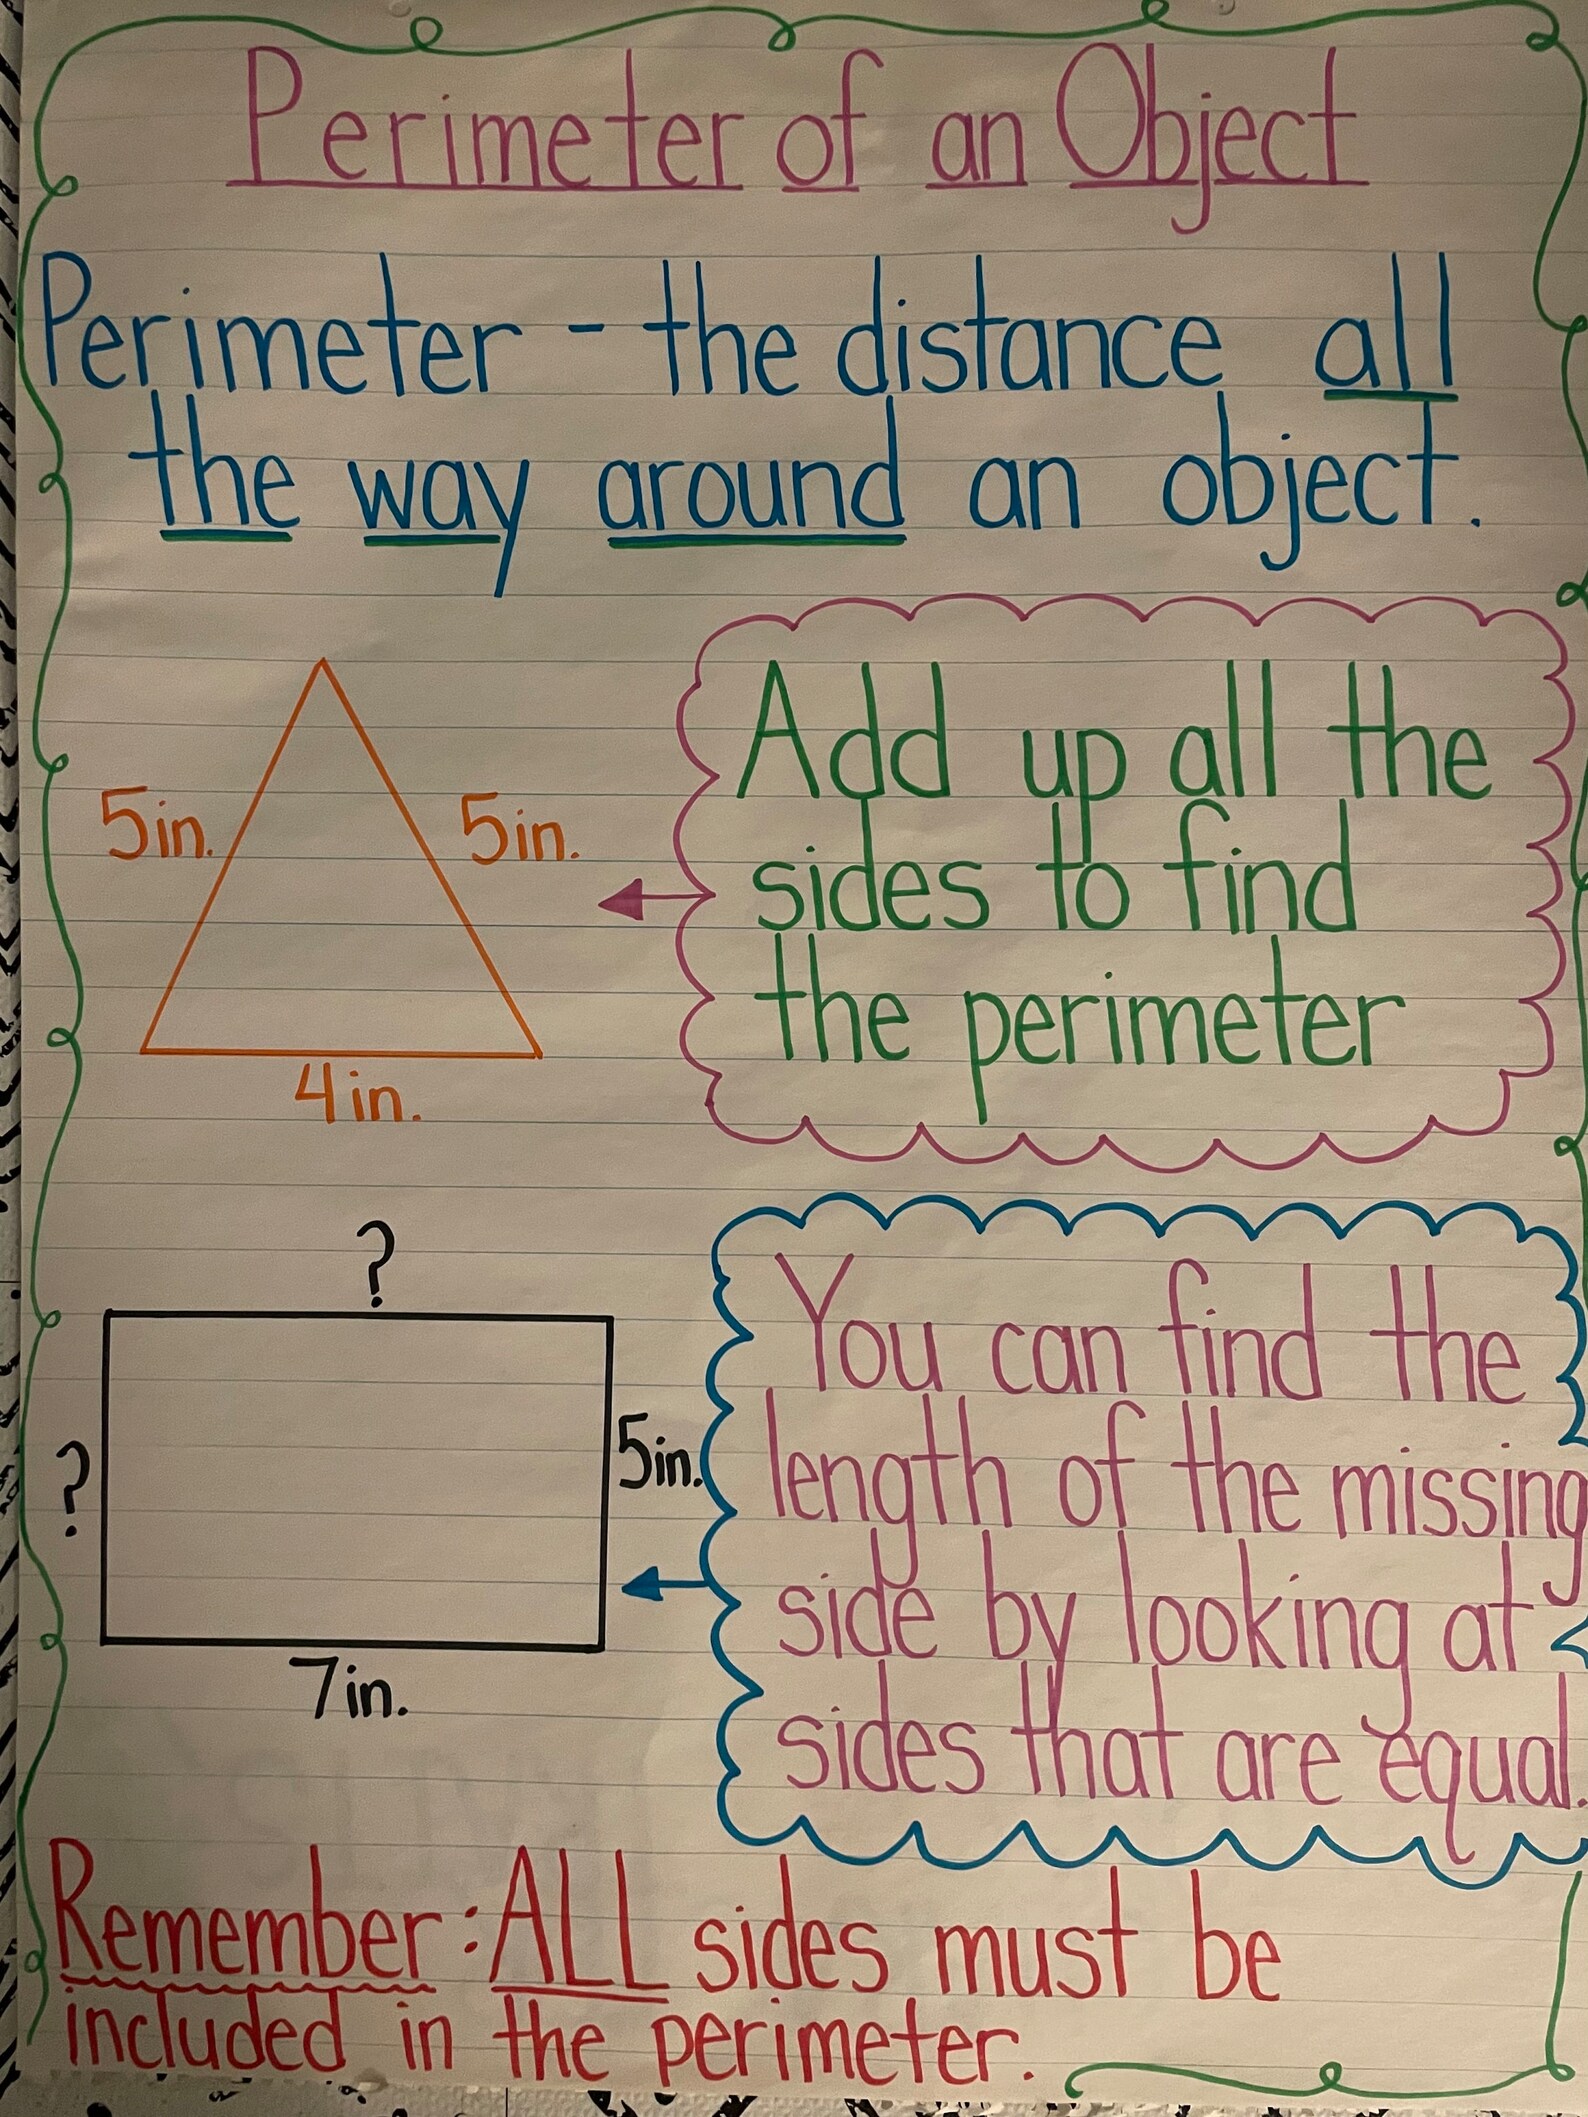 Perimeter of an Object
Perimeter - the distance all
the way around an object.
5in.
5in.
4in.
Add up all the
sides to find
the perimeter
?
?
5in.
7in.
You can find the
length of the missing
side by looking at
sides that are equal.
Remember: ALL sides must be
included in the perimeter.